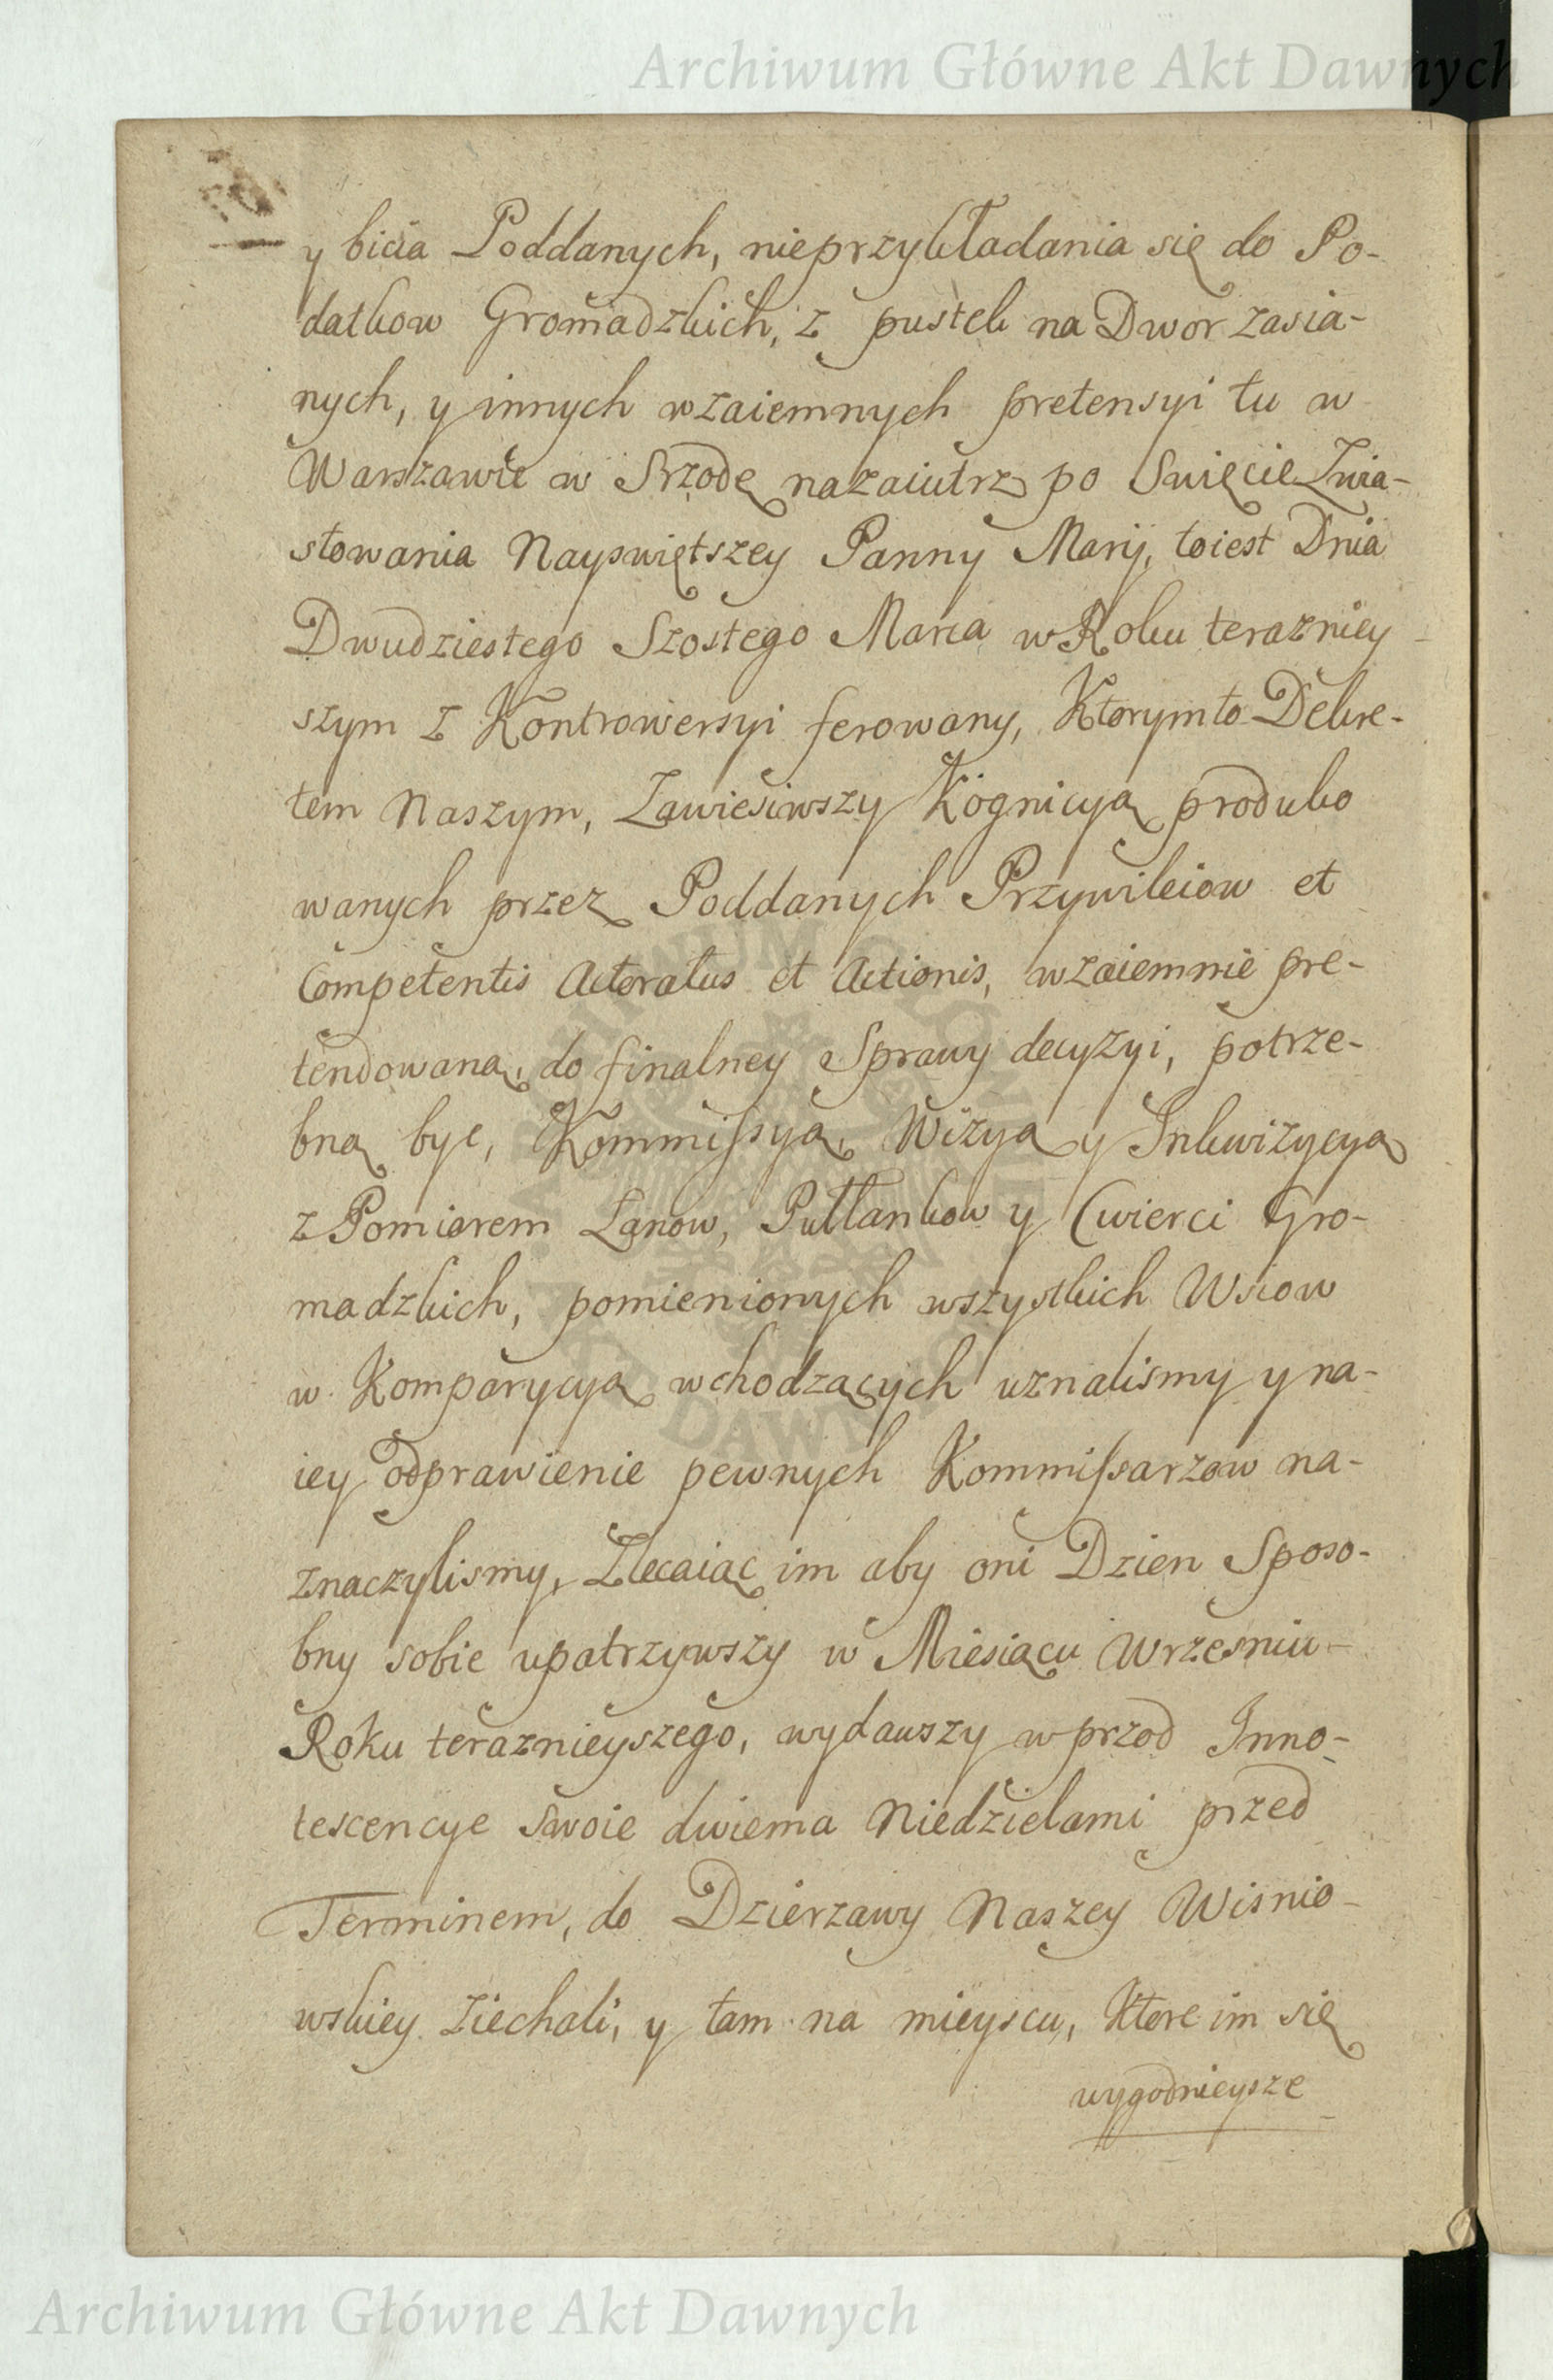 Archiwum Główne Akt Dawnych
y bicia Poddanych, nieprzykładania się do Po-
datkow Gromadzkich, z pustek na Dwor zasia-
nych, y innych wzaiemnych pretensyi tu w
Warszawie w Srzodę nazaiutrz po Swięcie Zwia-
stowania Nayswiętszey Panny Marij, toiest Dnia
Dwudziestego Szostego Marca w Roku terazniey
szym z Kontrowersyi ferowany, Ktorymto Dekre-
tem Naszym, Zawiesiwszy Kognicyą produko
wanych przez Poddanych Przywileiow et
Competentis Actoratus et Actionis, wzaiemnie pre-
tendowaną, do finalney Sprawy decyzyi, potrze-
bną byc, Kommissyą, Wizyą y Inkwizycyą
z Pomiarem Łanow, Pułłankow y Cwierci Gro-
madzkich, pomienionych wszystkich Wsiow
w Komparycyą wchodzących uznalismy y na-
iey odprawienie pewnych Kommissarzow na-
znaczylismy, Zlecaiąc im aby oni Dzien Sposo-
bny sobie upatrzywszy w Miesiącu Wrzesniu
Roku teraznieyszego, wydawszy wprzod Inno-
tescencye Swoie dwiema Niedzielami przed
Terminem, do Dzierzawy Naszey Wisnio-
wskiey ziechali, y tam na mieyscu, Ktore im się
wygodnieysze
ARCHIWUM GŁÓWNE AKT DAWNYCH
Archiwum Główne Akt Dawnych